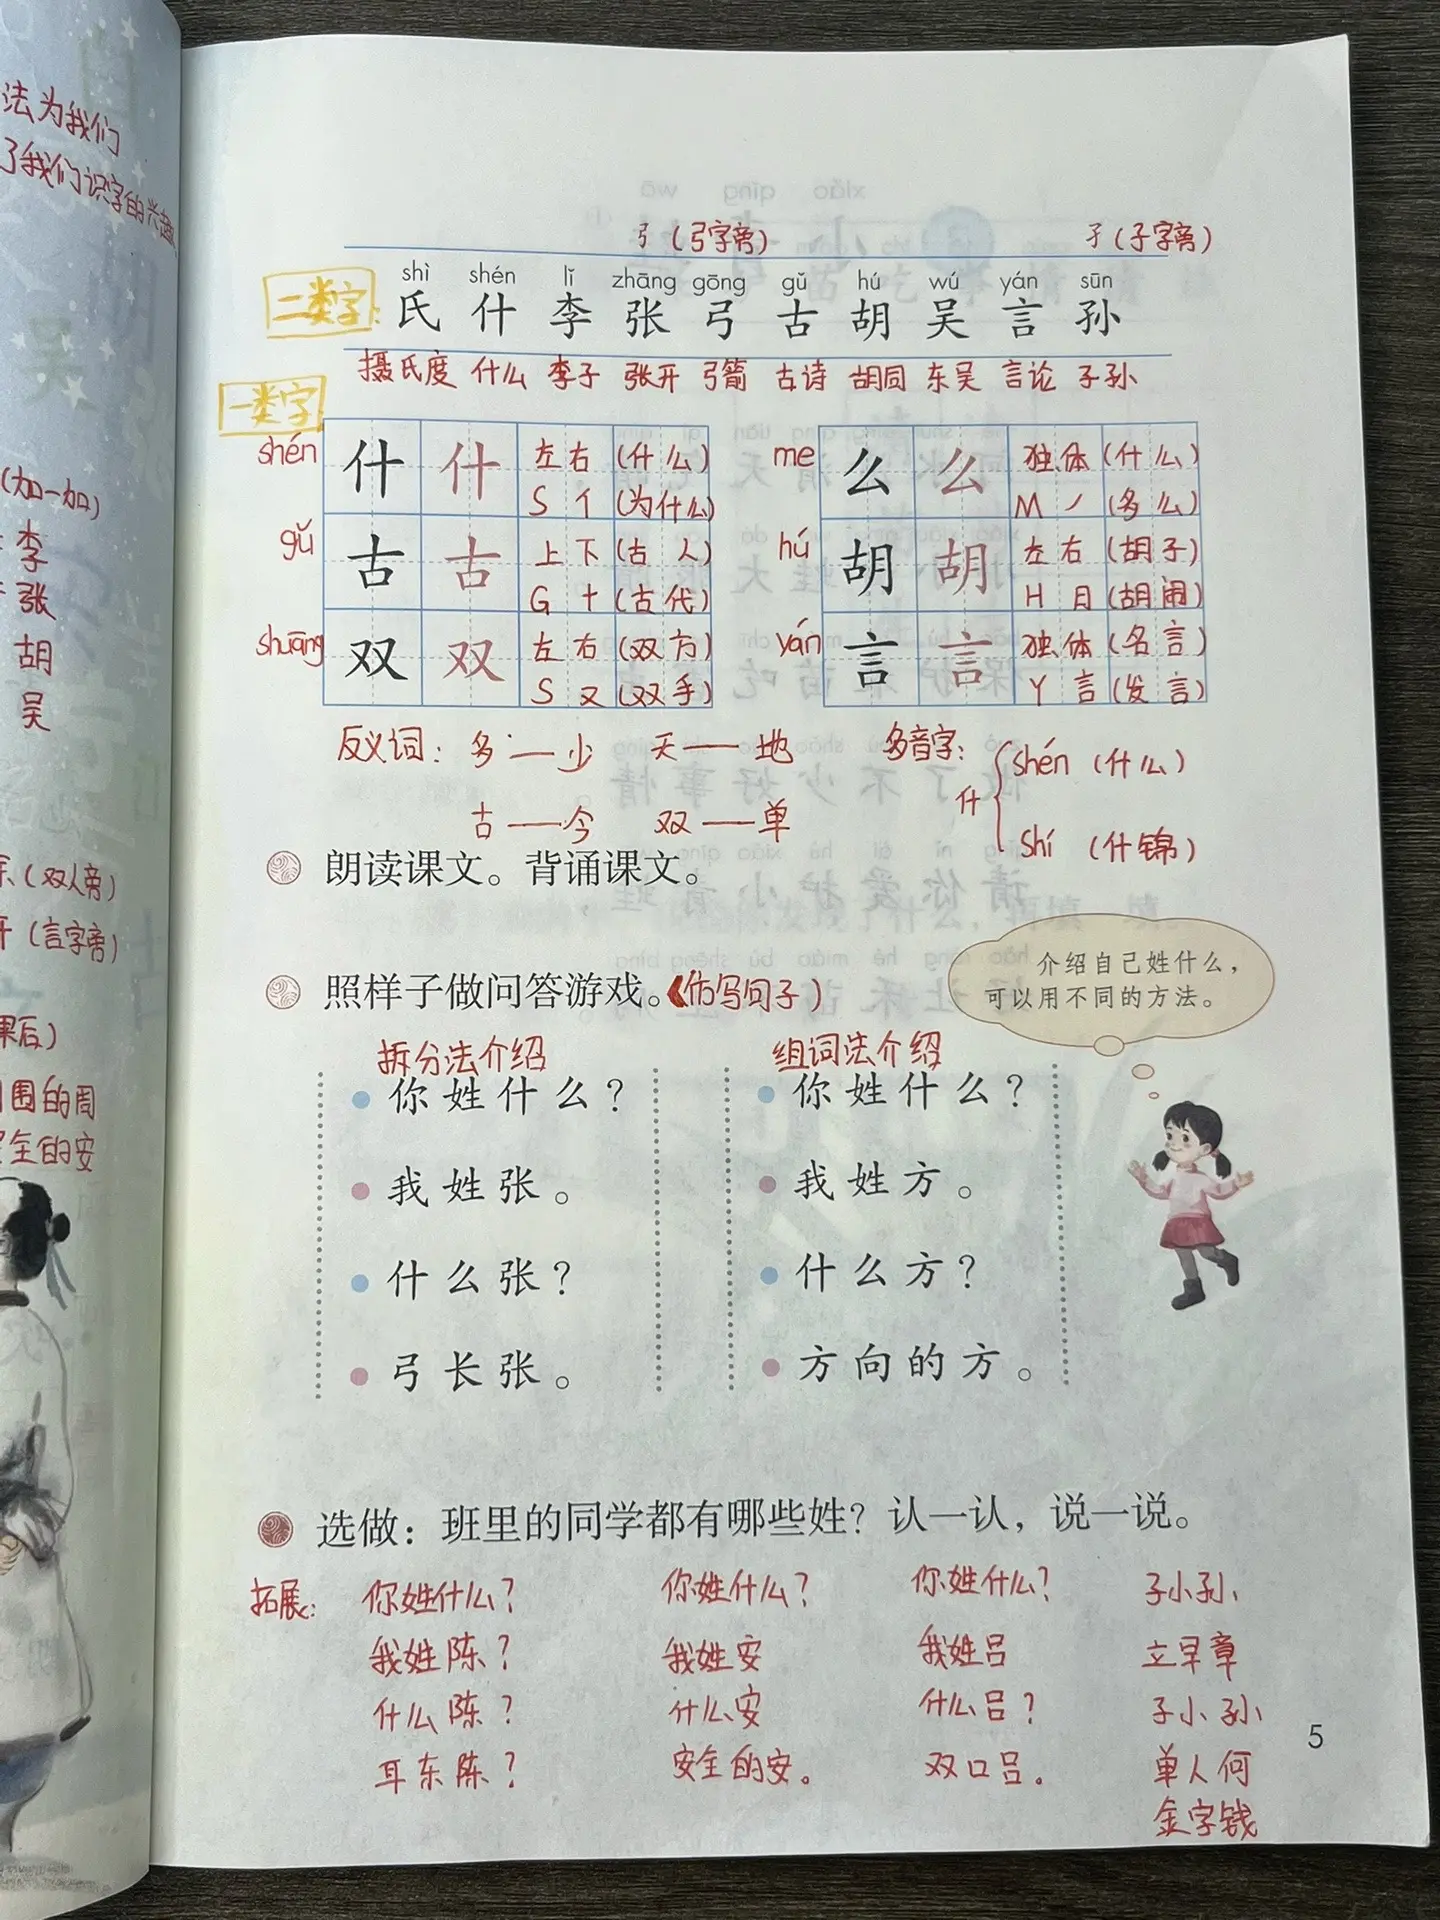 法为我们
了我们识字的兴趣
(加一加)
李
张
胡
吴
(双人旁)
(言字旁)
课后)
围的周
安全的安
弓(弓字旁) 子(子字旁)
shì shén lǐ zhāng gōng gǔ hú wú yán sūn
二类字: 氏 什 李 张 弓 古 胡 吴 言 孙
摄氏度 什么 李子 张开 弓箭 古诗 胡同 东吴 言论 子孙
一类字
shén 什 什 左右 (什么) me 么 么 独体 (什么)
S 亻 (为什么) M 丿 (多么)
gǔ 古 古 上下 (古人) hú 胡 胡 左右 (胡子)
G 十 (古代) H 月 (胡闹)
shuāng 双 双 左右 (双方) yán 言 言 独体 (名言)
S 又 (双手) Y 言 (发言)
反义词: 多——少 天——地 多音字: 什 shén (什么)
古——今 双——单 shí (什锦)
朗读课文。背诵课文。
照样子做问答游戏。(仿写句子)
介绍自己姓什么,
可以用不同的方法。
拆分法介绍 组词法介绍
你姓什么? 你姓什么?
我姓张。 我姓方。
什么张? 什么方?
弓长张。 方向的方。
选做:班里的同学都有哪些姓?认一认,说一说。
拓展: 你姓什么? 你姓什么? 你姓什么? 子小孙
我姓陈? 我姓安 我姓吕 立早章
什么陈? 什么安 什么吕? 子小孙
耳东陈? 安全的安。 双口吕。 单人何
金字钱
5